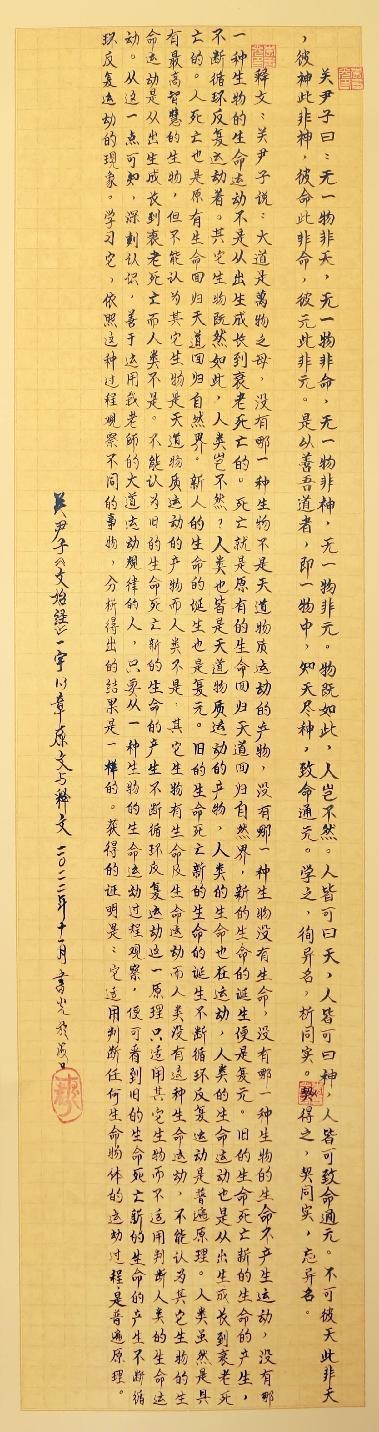 关尹子曰：无一物非天，无一物非命，无一物非神，无一物非元。物既如此，人岂不然。人皆可曰天，人皆可曰神，人皆可致命通元。不可彼天此非天
，彼神此非神，彼命此非命，彼元此非元。是以善吾道者，即一物中，知天尽神，致命通元。学之，徇异名，析同实。契得之，契同实，忘异名。
释文：关尹子说：大道是萬物之母，没有哪一种生物不是天道物质运动的产物，没有哪一种生物没有生命，没有哪一种生物的生命不产生运动，没有哪
一种生物的生命运动不是从出生成长到衰老死亡的。死亡就是原有的生命回归天道回归自然界，新的生命的诞生便是复元。旧的生命死亡新的生命的产生，
不断循环反复运动着。其它生物既然如此，人类岂不然？人类也皆是天道物质运动的产物，人类的生命也在运动，人类的生命运动也是从出生成长到衰老死
亡的。人死亡也是原有生命回归天道回归自然界。新人的生命的诞生也是复元。旧的生命死亡新的生命的诞生不断循环反复运动是普遍原理。人类虽然是具
有最高智慧的生物，但不能认为其它生物是天道物质运动的产物而人类不是。其它生物有生命及生命运动而人类没有这种生命运动，不能认为其它生物的生
命运动是从出生成长到衰老死亡而人类不是。不能认为旧的生命死亡新的生命的产生不断循环反复运动这一原理只适用其它生物而不适用判断人类的生命运
动。从这一点可知，深刻认识，善于运用我老師的大道运动规律的人，只要从一种生物的生命运动过程观察，便可看到旧的生命死亡新的生命的产生不断循
环反复运动的现象。学习它，依照这种过程观察不同的事物，分析得出的结果是一样的。获得的证明是：它适用判断任何生命物体的运动过程，是普遍原理。
关尹子《文始经》一宇以章原文与释文 二〇二二年十一月 書